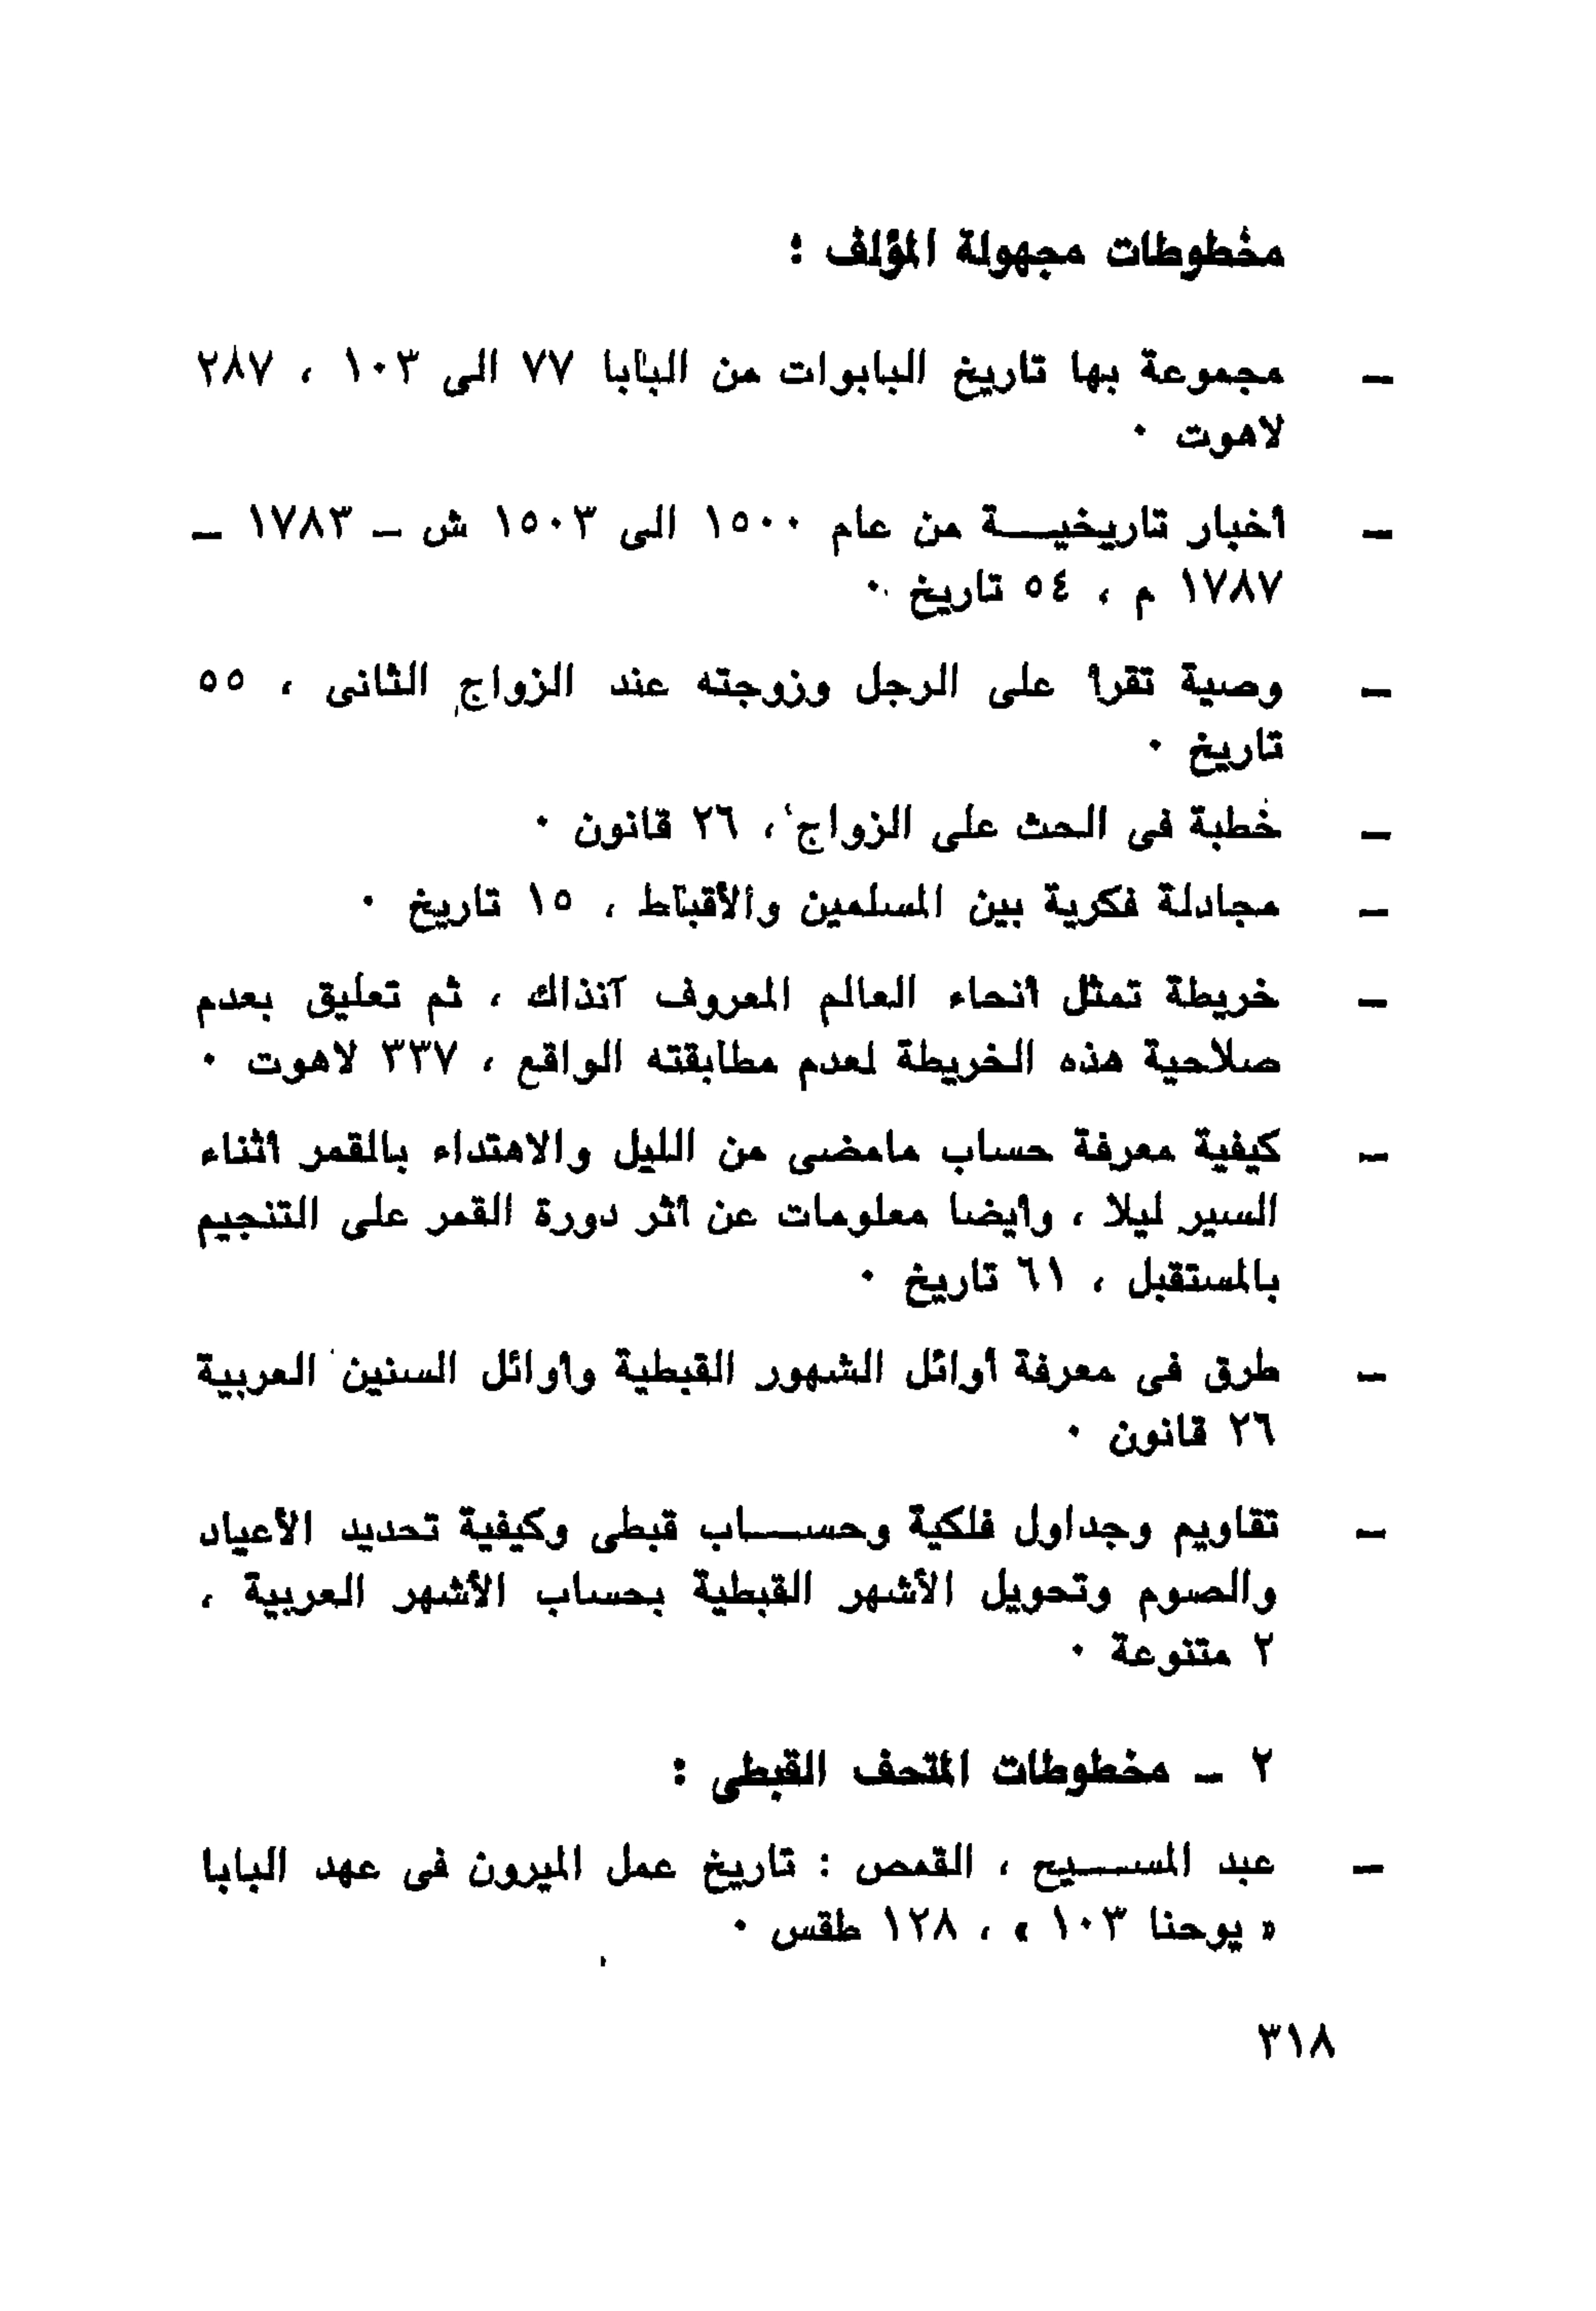 مخطوطات مجهولة المؤلف :
— مجموعة بها تاريخ البابوات من البابا ٧٧ الى ١٠٣ ، ٢٨٧
لاهوت ٠
— أخبار تاريخيـــة من عام ١٥٠٠ الى ١٥٠٣ ش — ١٧٨٣ —
١٧٨٧ م ، ٥٤ تاريخ ٠
— وصية تقرأ على الرجل وزوجته عند الزواج الثانى ، ٥٥
تاريخ ٠
— خطبة فى الحث على الزواج ، ٢٦ قانون ٠
— مجادلة فكرية بين المسلمين والأقباط ، ١٥ تاريخ ٠
— خريطة تمثل أنحاء العالم المعروف آنذاك ، ثم تعليق بعدم
صلاحية هذه الخريطة لعدم مطابقته الواقع ، ٣٣٧ لاهوت ٠
— كيفية معرفة حساب مامضى من الليل والاهتداء بالقمر أثناء
السير ليلا ، وأيضا معلومات عن أثر دورة القمر على التنجيم
بالمستقبل ، ٦١ تاريخ ٠
— طرق فى معرفة أوائل الشهور القبطية وأوائل السنين العربية
٢٦ قانون ٠
— تقاويم وجداول فلكية وحســـاب قبطى وكيفية تحديد الأعياد
والصوم وتحويل الأشهر القبطية بحساب الأشهر العربية ،
٢ متنوعة ٠
٢ — مخطوطات المتحف القبطى :
— عبد المســـيح ، القمص : تاريخ عمل الميرون فى عهد البابا
« يوحنا ١٠٣ » ، ١٢٨ طقس ٠
٣١٨